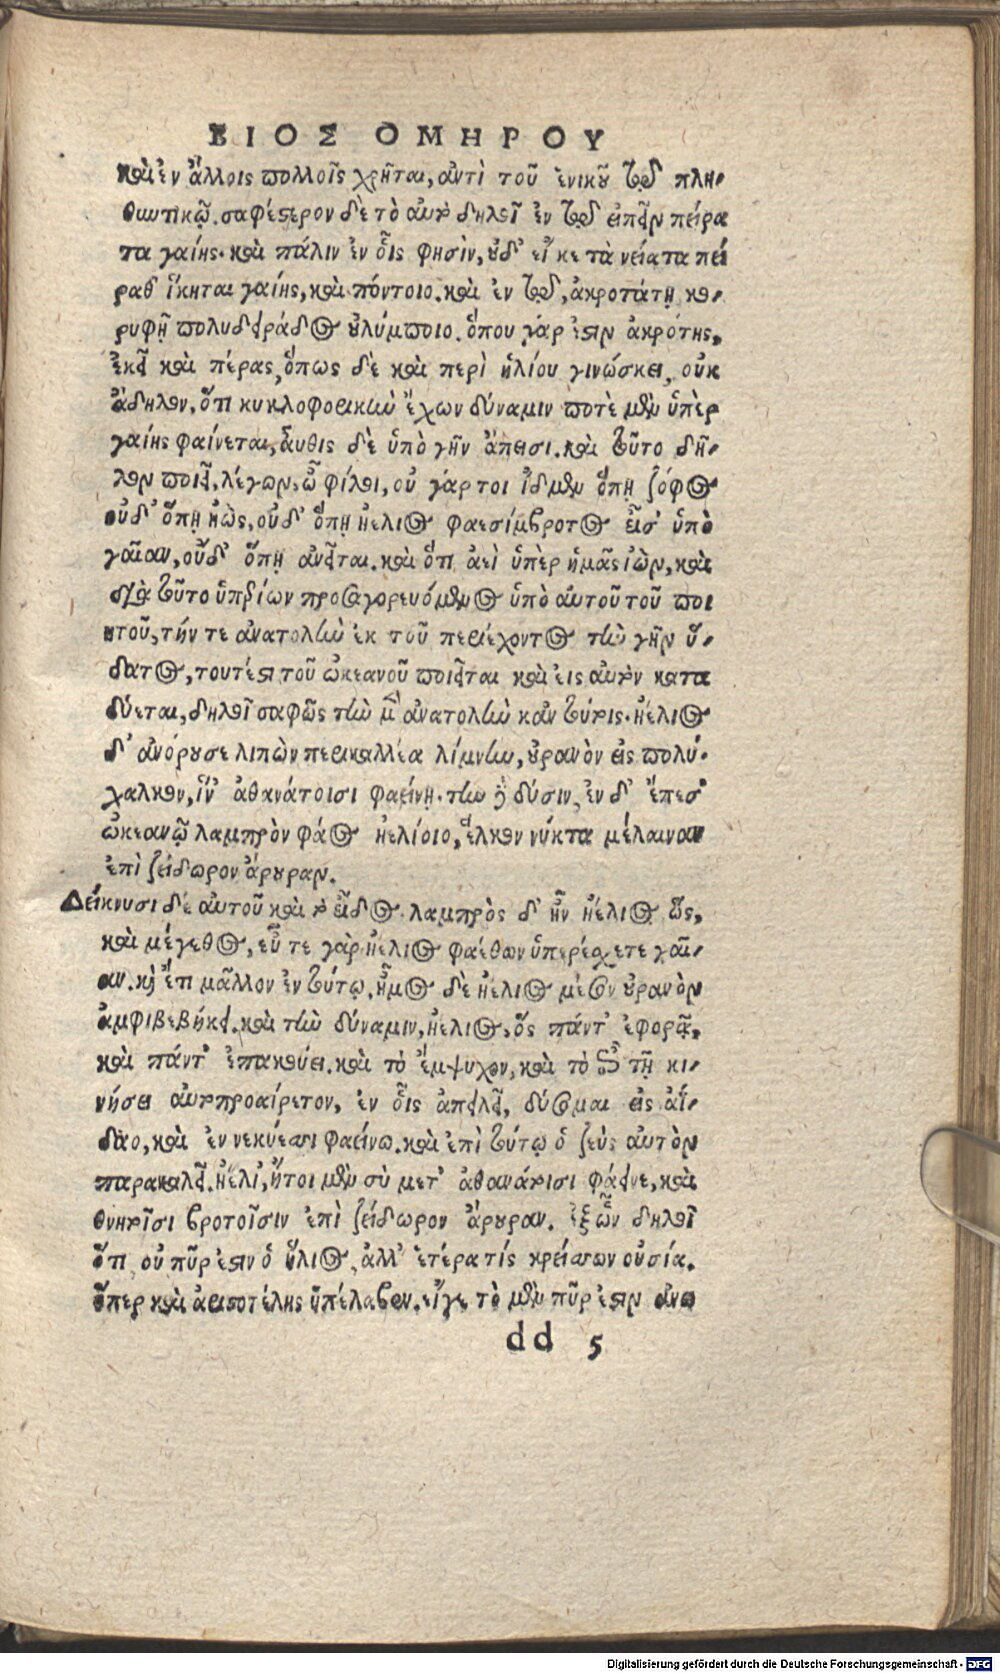 ΒΙΟΣ ΟΜΗΡΟΥ
καὶ ἐν ἄλλοις πολλοῖς χρῆται, ἀντὶ τοῦ ἑνικοῦ τῷ πλη-
θυντικῷ. σαφέστερον δὲ τὸ αὐτὸ δηλοῖ ἐν τῷ εἰπεῖν πείρα
τα γαίης. καὶ πάλιν ἐν οἷς φησὶν, οὐδ' εἴ κε τὰ νείατα πεί
ραθ' ἵκηται γαίης, καὶ πόντοιο. καὶ ἐν τῷ, ἀκροτάτῃ κο-
ρυφῇ πολυδειράδος οὐλύμποιο. ὅπου γάρ ἐστιν ἀκρότης,
ἐκεῖ καὶ πέρας, ὅπως δὲ καὶ περὶ ἡλίου γινώσκει, οὐκ
ἄδηλον, ὅτι κυκλοφορικὴν ἔχων δύναμιν ποτὲ μὲν ὑπὲρ
γαίης φαίνεται, αὖθις δὲ ὑπὸ γῆν ἄπεισι. καὶ τοῦτο δῆ-
λον ποιεῖ, λέγων, ὦ φίλοι, οὐ γάρ τοι ἴδμεν ὅπῃ ζόφος
οὐδ' ὅπῃ ἠὼς, οὐδ' ὅπῃ ἠέλιος φαεσίμβροτος εἶσ' ὑπὸ
γαῖαν, οὐδ' ὅπῃ ἀνεῖται. καὶ ὅτι ἀεὶ ὑπὲρ ἡμᾶς ἰὼν, καὶ
διὰ τοῦτο ὑπερίων προσαγορευόμενος ὑπὸ αὐτοῦ τοῦ ποι
ητοῦ, τήν τε ἀνατολὴν ἐκ τοῦ περιέχοντος τὴν γῆν ὕ-
δατος, τουτέστι τοῦ ὠκεανοῦ ποιεῖται καὶ εἰς αὐτὸν κατα
δύεται, δηλοῖ σαφῶς τὴν μὲν ἀνατολὴν κἀν τούτοις. ἠέλιος
δ' ἀνόρουσε λιπὼν περικαλλέα λίμνην, οὐρανὸν εἰς πολύ-
χαλκον, ἵν' ἀθανάτοισι φαείνῃ. τὴν δὲ δύσιν, ἐν δ' ἔπεσ'
ὠκεανῷ λαμπρὸν φάος ἠελίοιο, ἕλκον νύκτα μέλαιναν
ἐπὶ ζείδωρον ἄρουραν.
Δείκνυσι δὲ αὐτοῦ καὶ τὸ εἶδος. λαμπρὸς δ' ἦν ἠέλιος ὣς,
καὶ μέγεθος, εὖ τε γὰρ ἠέλιος φαέθων ὑπερέσχετε γαῖ-
αν. καὶ ἔτι μᾶλλον ἐν τούτῳ. ἦμος δὲ ἠέλιος μέσον οὐρανὸν
ἀμφιβεβήκει. καὶ τὴν δύναμιν, ἠέλιος, ὃς πάντ' ἐφορᾷ,
καὶ πάντ' ἐπακούει. καὶ τὸ ἔμψυχον, καὶ τὸ ἐν τῇ κι-
νήσει αὐτοπροαίρετον, ἐν οἷς ἀπειλεῖ, δύσομαι εἰς ἀΐ-
δαο, καὶ ἐν νεκύεσσι φαείνω. καὶ ἐπὶ τούτῳ ὁ ζεὺς αὐτὸν
παρακαλεῖ. ἠέλι', ἤτοι μὲν σὺ μετ' ἀθανάτοισι φάεινε, καὶ
θνητοῖσι βροτοῖσιν ἐπὶ ζείδωρον ἄρουραν. ἐξ ὧν δηλοῖ
ὅτι οὐ πῦρ ἐστιν ὁ ἥλιος, ἀλλ' ἑτέρα τίς κρείσσων οὐσία.
ὅπερ καὶ ἀριστοτέλης ὑπέλαβεν. εἴγε τὸ μὲν πῦρ ἐστιν ἀνω
dd 5
Digitalisierung gefördert durch die Deutsche Forschungsgemeinschaft - DFG